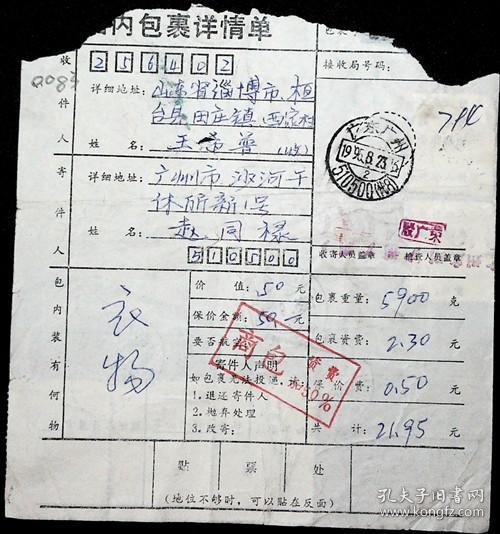 内包裹详情单
接收局号码:
收件人
256402
详细地址: 山东省淄博市桓
台县田庄镇
姓名: 王
寄件人
详细地址: 广州市沙河干
休所新1号
姓名: 赵同禄
510500
广东广州
1996.8.23
510500
收寄人员盖章
检查人员盖章
包内装有何物
衣物
价值: 50元
保价金额: 50元
要否
寄件人声明
如包裹无法投递,请:
1.退还寄件人
2.抛弃处理
3.改寄:
商包
资费
50%
包裹重量: 5900 克
包裹资费: 2.30 元
保价费: 0.50 元
共计: 21.95 元
贴票处
(地位不够时,可以贴在反面)
孔夫子旧书网
www.kongfz.com